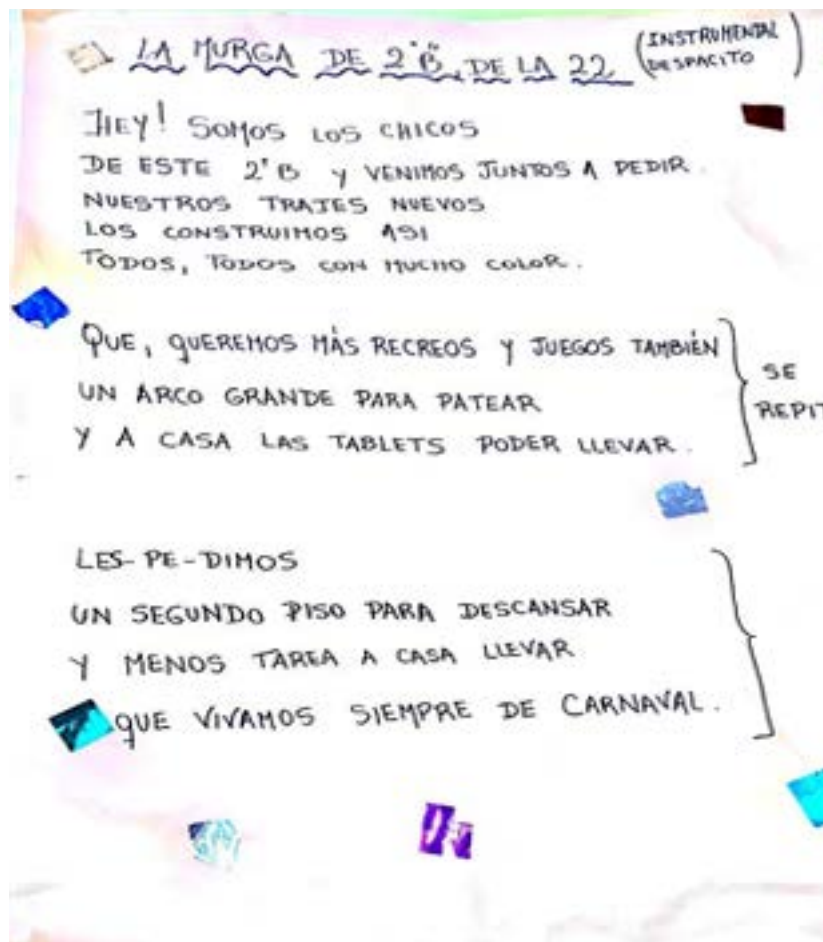 LA MURGA DE 2°B DE LA 22 (INSTRUMENTAL DESPACITO)
HEY! SOMOS LOS CHICOS
DE ESTE 2°B Y VENIMOS JUNTOS A PEDIR.
NUESTROS TRAJES NUEVOS
LOS CONSTRUIMOS ASI
TODOS, TODOS CON MUCHO COLOR.
QUE, QUEREMOS MÁS RECREOS Y JUEGOS TAMBIÉN
UN ARCO GRANDE PARA PATEAR
Y A CASA LAS TABLETS PODER LLEVAR.
SE
REPIT
LES-PE-DIMOS
UN SEGUNDO PISO PARA DESCANSAR
Y MENOS TAREA A CASA LLEVAR
QUE VIVAMOS SIEMPRE DE CARNAVAL.